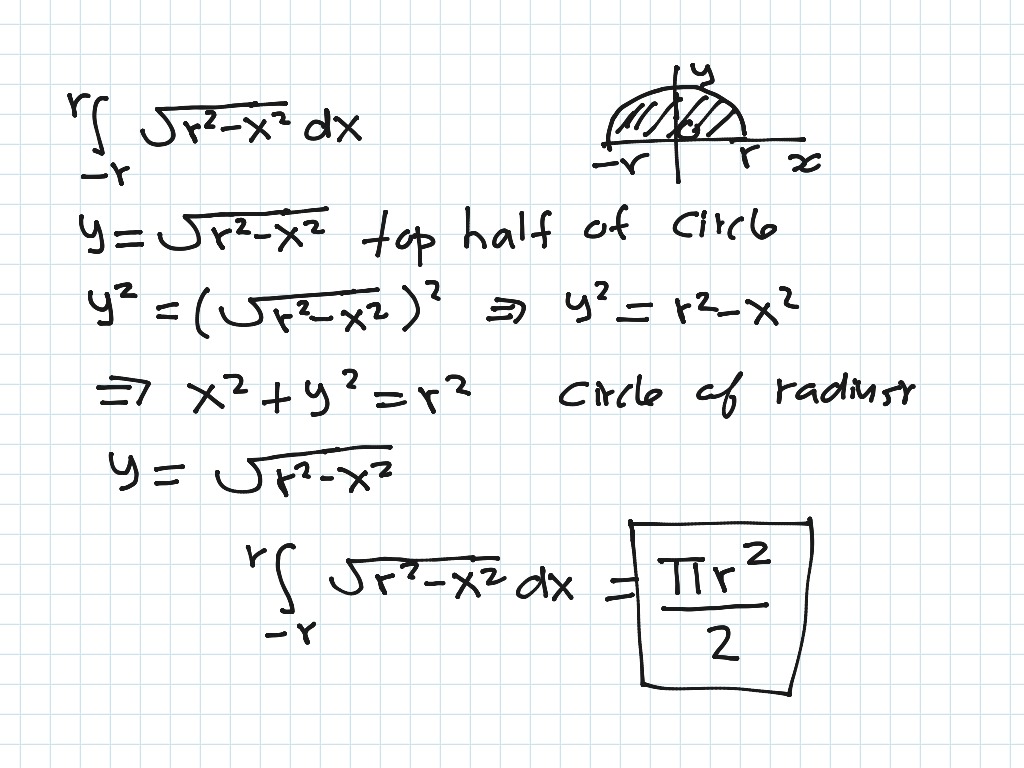 ∫_{-r}^{r} √(r²-x²) dx
y
-r O r x
y = √(r²-x²) top half of circle
y² = (√(r²-x²))² ⇒ y² = r²-x²
⇒ x² + y² = r² circle of radius r
y = √(r²-x²)
∫_{-r}^{r} √(r²-x²) dx = πr²/2